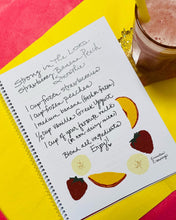 Strong in the Lord
Strawberry Banana Peach
Smoothie
1 cup frozen strawberries
1 cup frozen peaches
1 medium banana (fresh or frozen)
1/2 cup vanilla Greek Yogurt
1 cup of your favorite milk
Blend all ingredients
Enjoy!